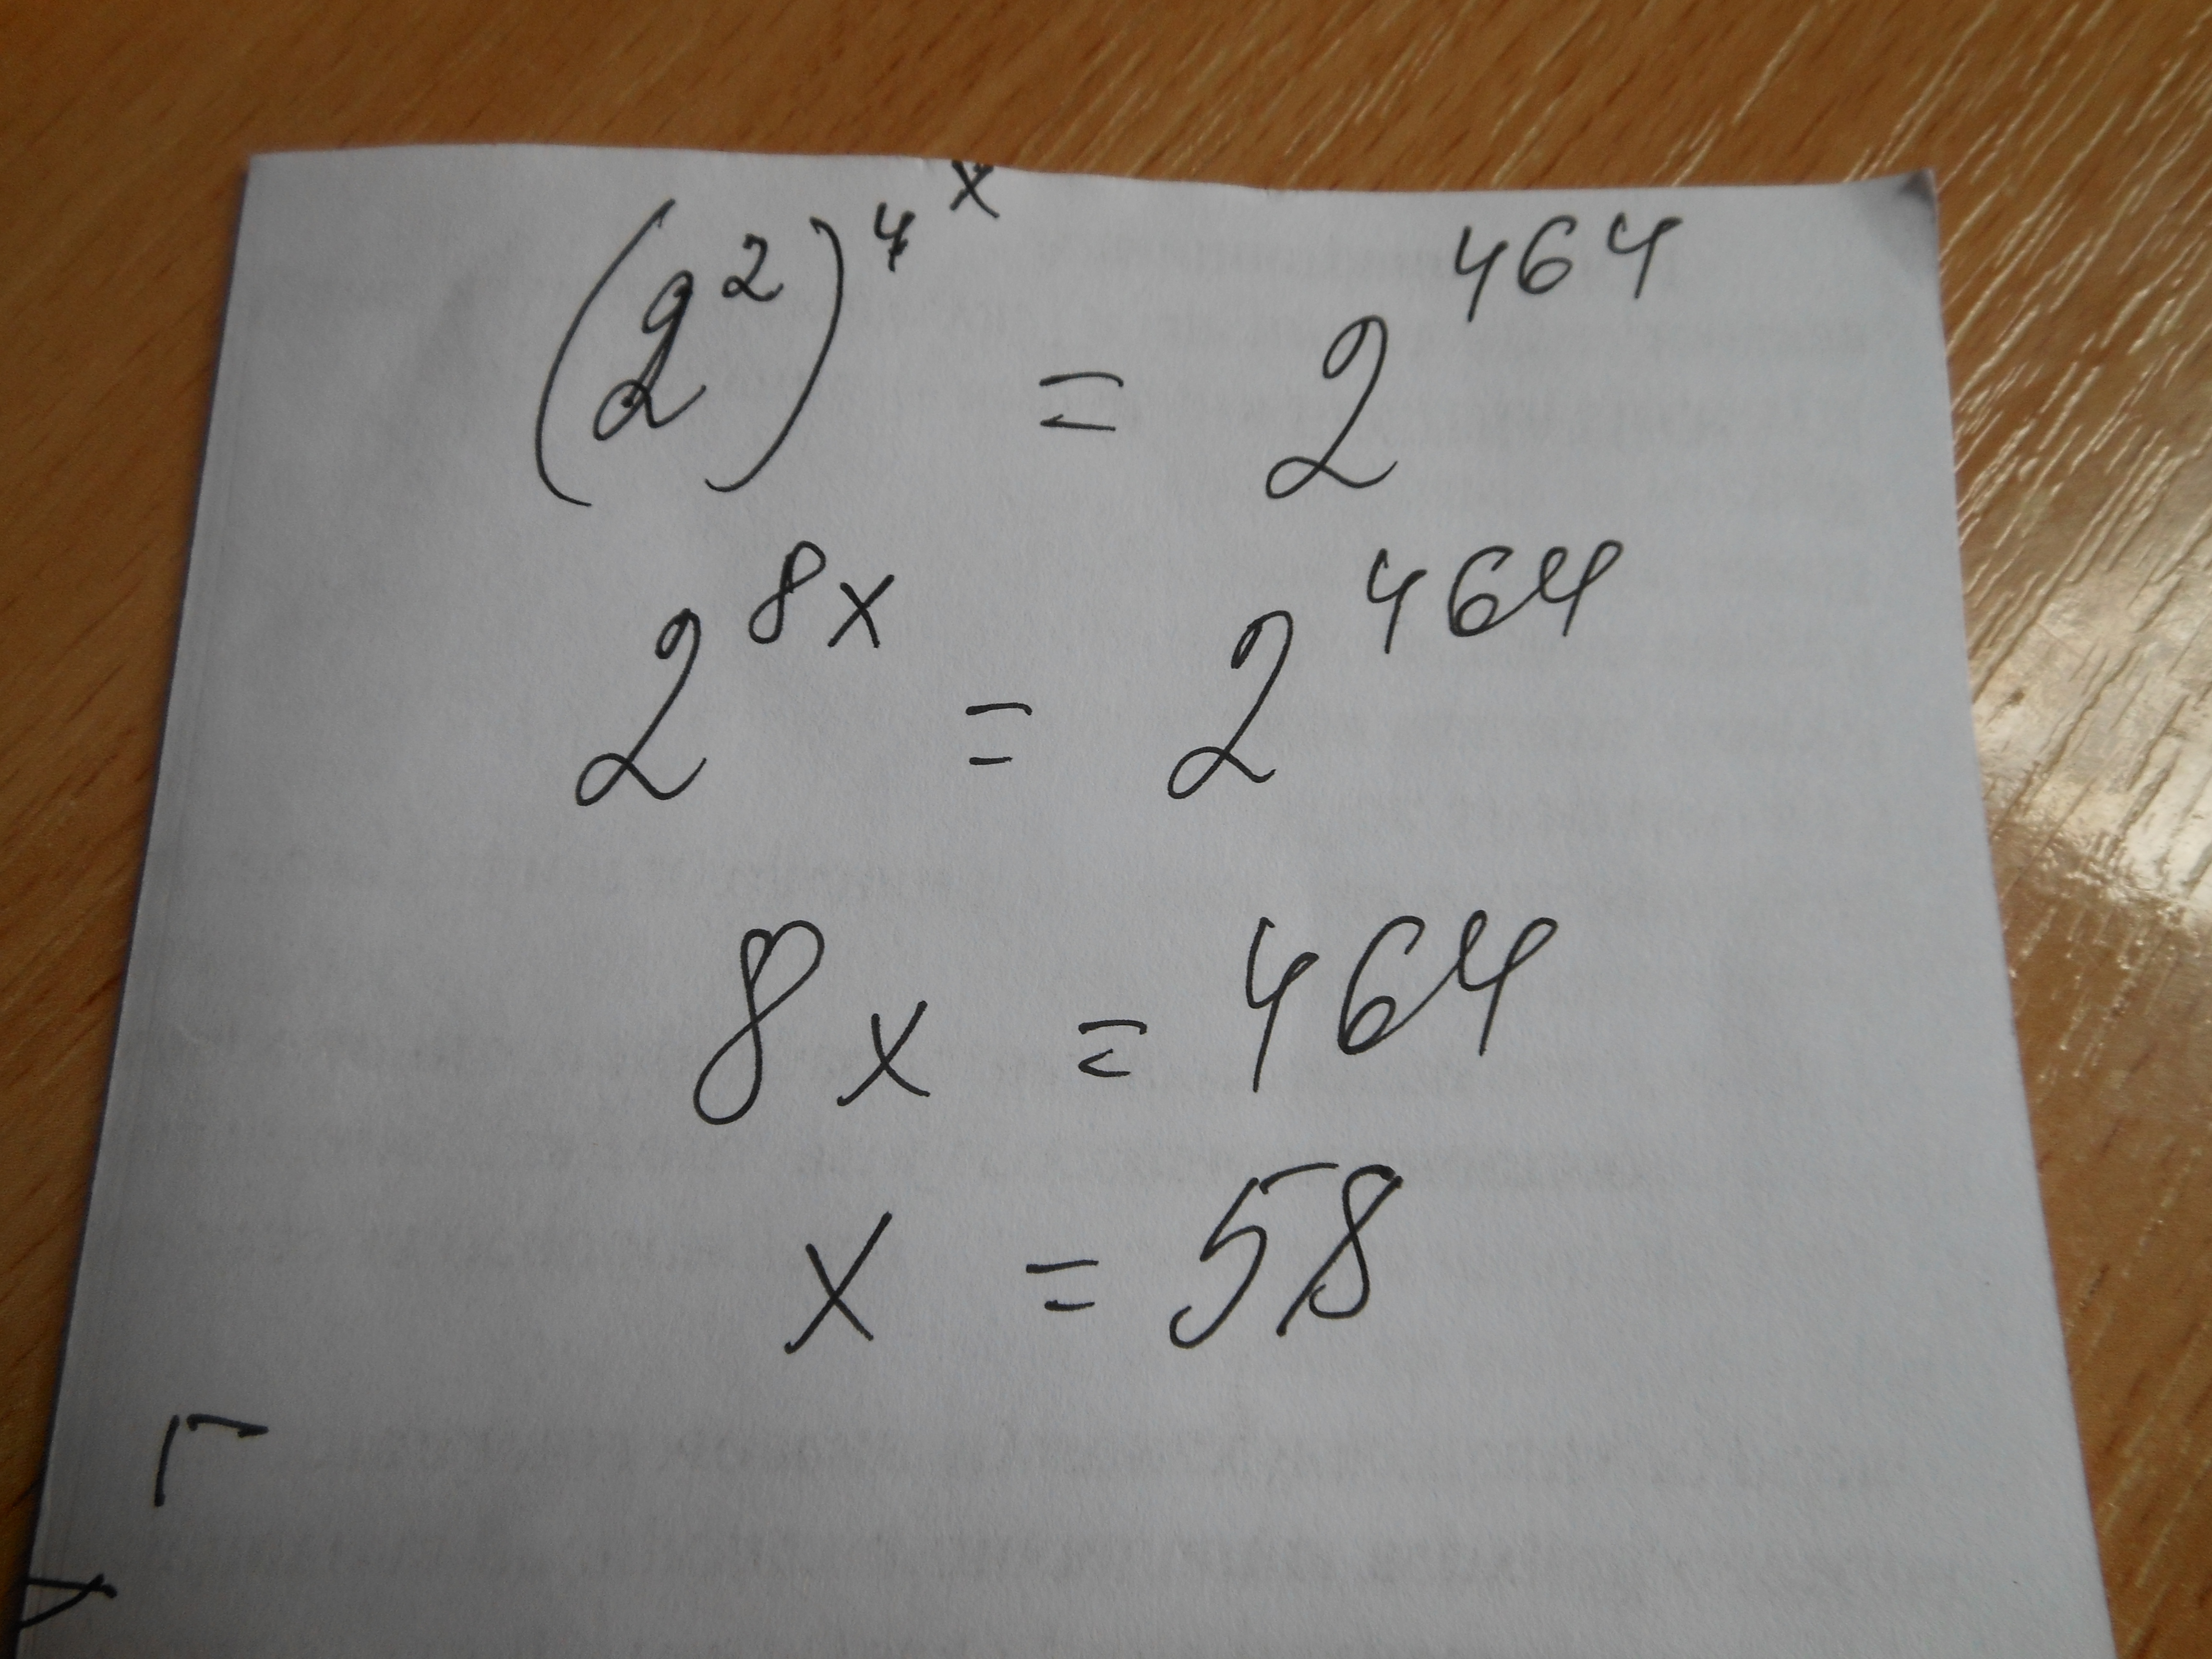 (2²)⁴ˣ = 2⁴⁶⁴
2⁸ˣ = 2⁴⁶⁴
8x = 464
x = 58